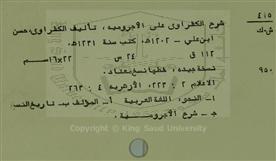 ٤١٥
ش . ك
شرح الكفراوى على الآجرومية ، تأليف الكفراوى ، حسن
ابن على - ١٢٠٢هـ . كتب سنة ١٢٣١هـ .
١١٢ ق ٢٤ س ٢٢×١٦ سم
٩٥٠
نسخة جيدة ، خطها نسخ معتاد .
الاعلام ٢ : ٢٢٣ ، الأزهرية ٤ : ٢٦٣
١- النحو ، اللغة العربية أ- المؤلف ب- تاريخ النسخ
ج - شرح الآجرومية .
KING SAUD UNIVERSITY